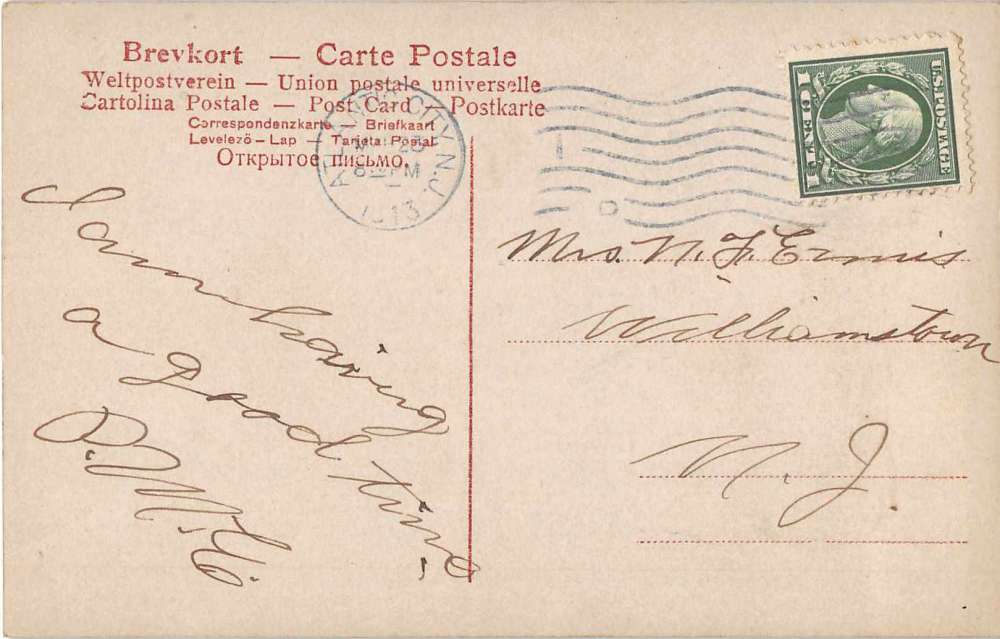 Brevkort — Carte Postale
Weltpostverein — Union postale universelle
Cartolina Postale — Post Card — Postkarte
Correspondenzkarte — Briefkaart
Levelező-Lap — Tarjeta Postal
Открытое письмо.
ATLANTIC CITY, N.J.
PM
1913
U.S. POSTAGE
1 CENT 1
Mrs. N. F. Ennis
Williamstown
N. J.
I am having
a good time